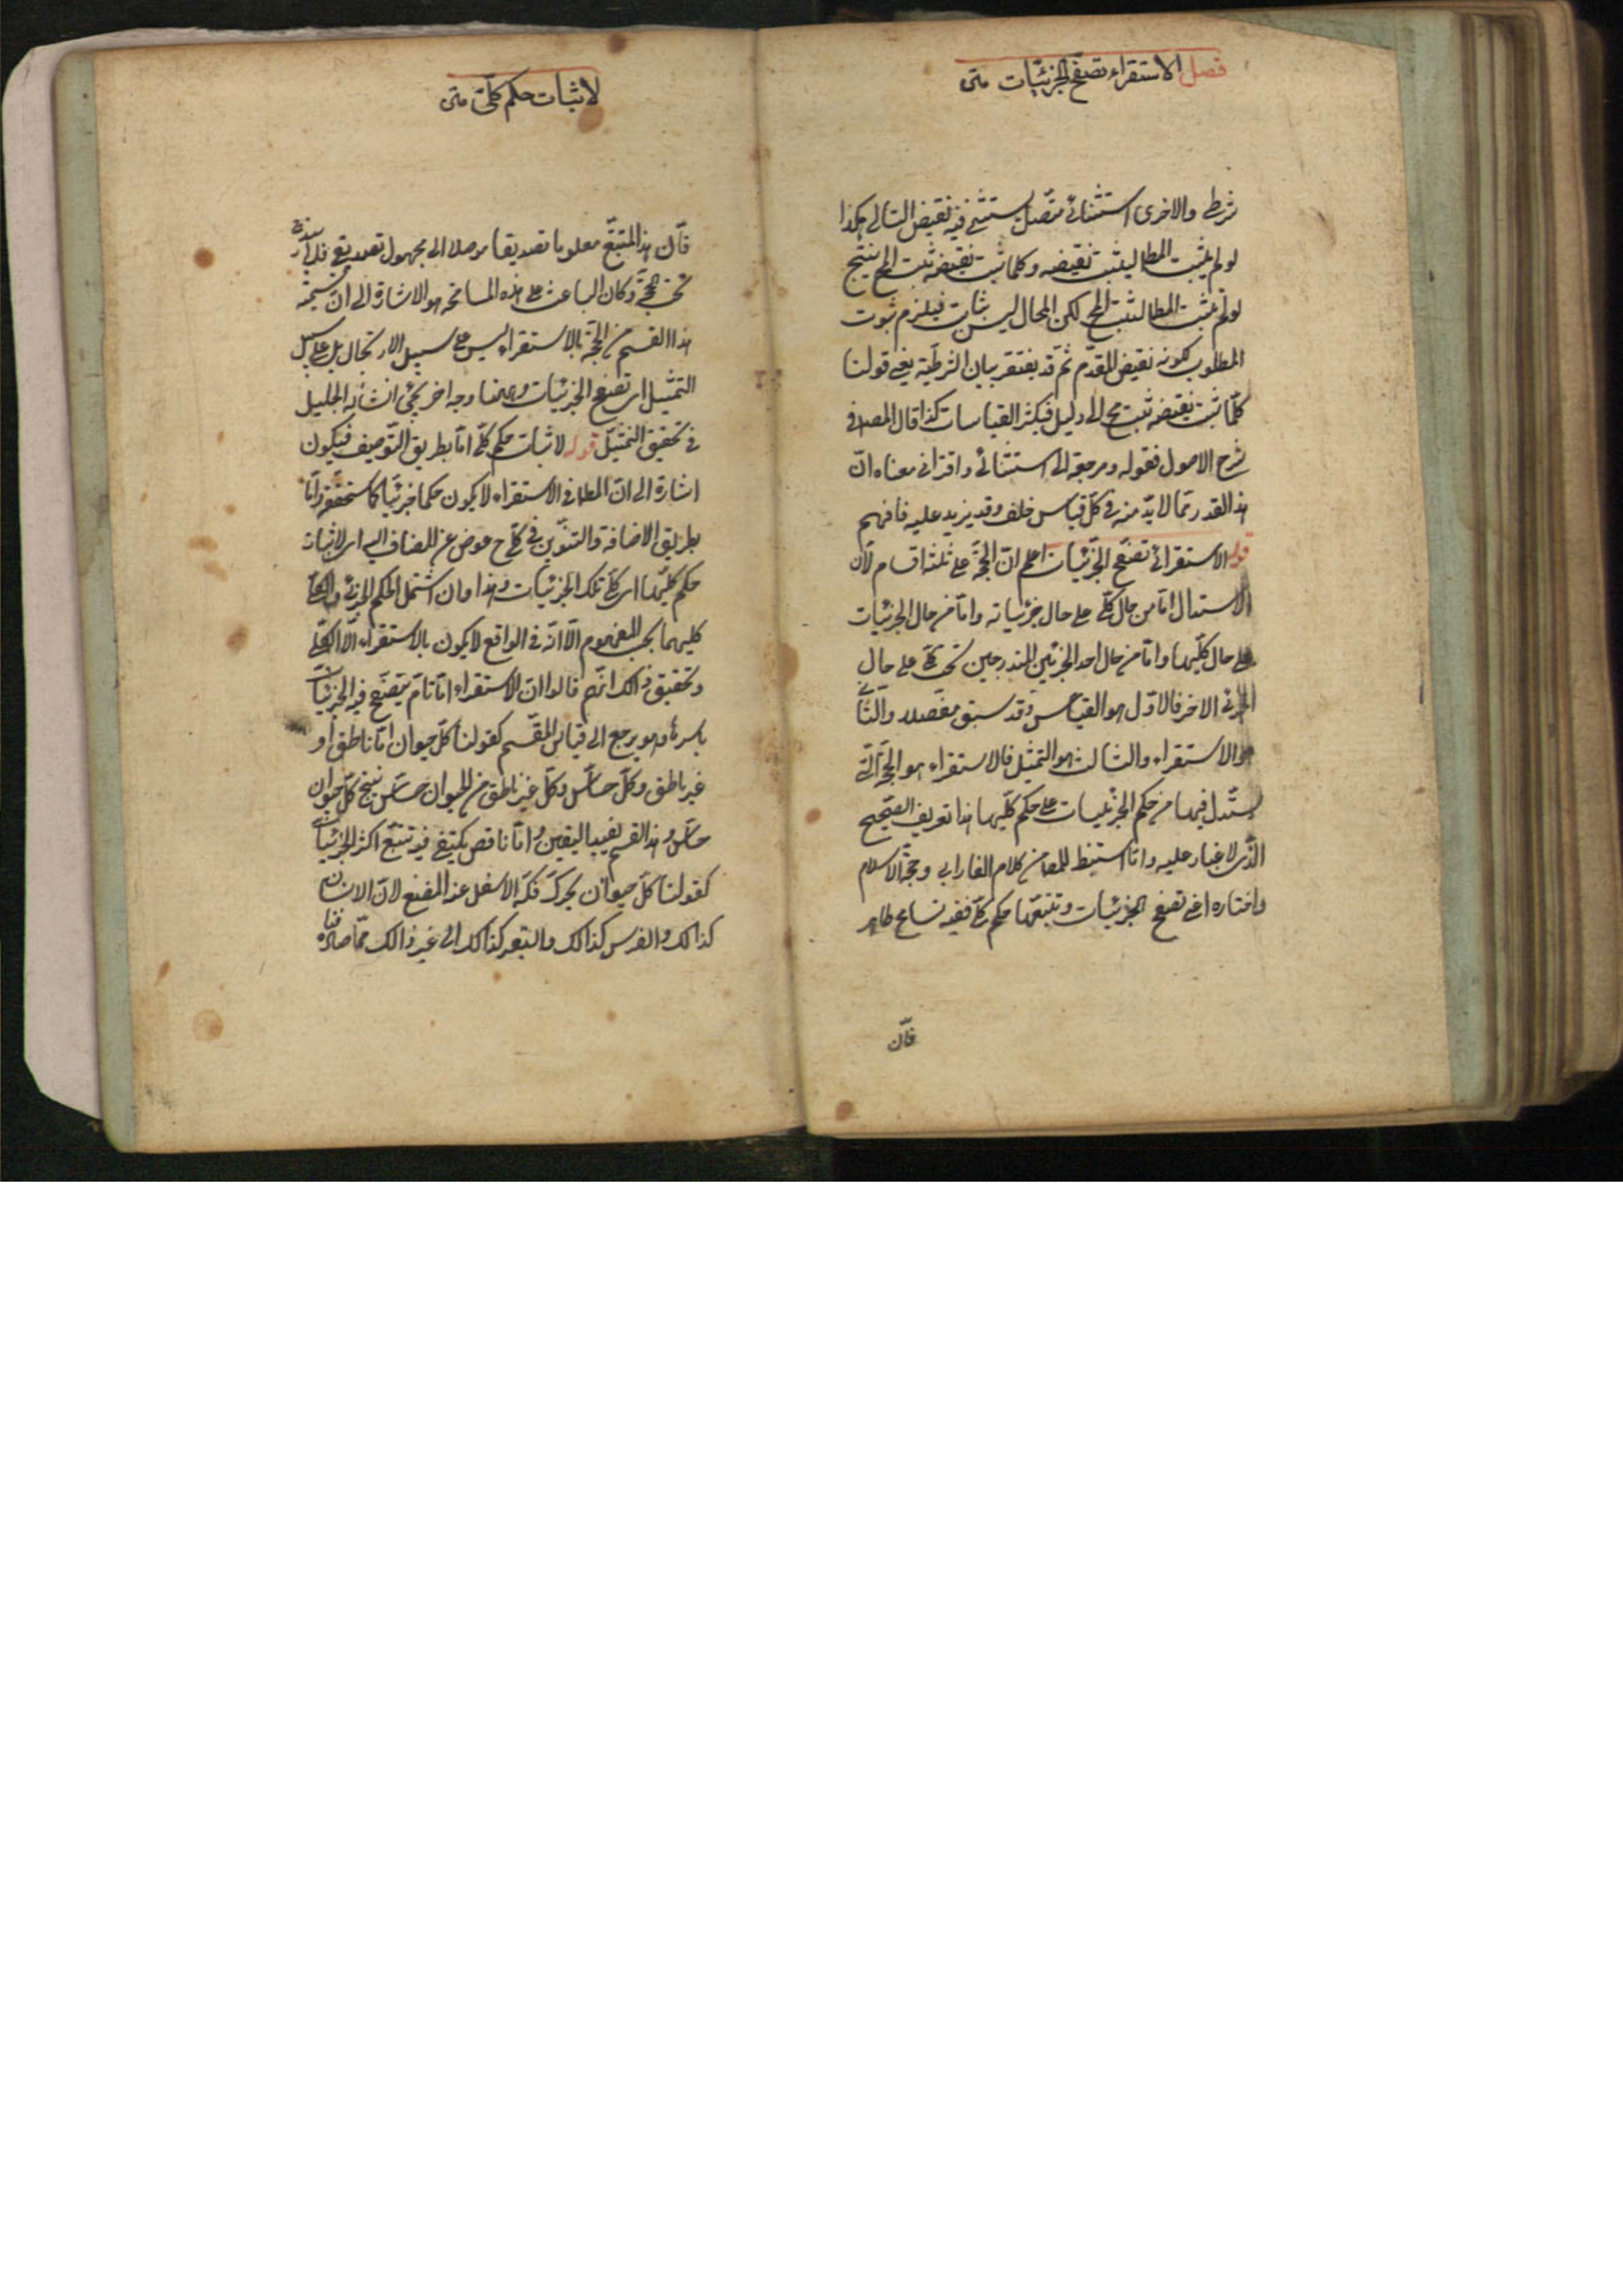 فصل الاستقراء تصفح الجزئيات متن
شرطى والاخرى استثنائى متصل يستثنى فيه نقيض التالى هكذا
لو لم يثبت المط ليثبت نقيضه وكلما ثبت نقيضه ثبت المح ينتج
لو لم يثبت المط لثبت المح لكن المحال ليس بثابت فيلزم ثبوت
المطلوب لكونه نقيض المقدم ثم قد يفتقر بيان الشرطية يعنى قولنا
كلما ثبت نقيضه ثبت مح الى دليل فيكثر القياسات كذا قال المصه فى
شرح الاصول فقوله ومرجعه الى استثنائى واقترانى معناه ان
هذا القدر مما لابد منه فى كل قياس خلف وقد يزيد عليه فافهم
قوله الاستقرائى تصفح الجزئيات اعلم ان الحجة على ثلثة اقسام لان
الاستدلال اما من حال كلى على حال جزئياته واما من حال الجزئيات
على حال كليها واما من حال احد الجزئين المندرجين تحت كلى على حال
الجزئى الاخر فالاول هو القياس وقد سبق مفصلا والثانى
هو الاستقراء والثالث هو التمثيل فالاستقراء هو الحجة التى
يستدل فيها من حكم الجزئيات على حكم كليها هذا تعريف الصحيح
الذى لا غبار عليه واما استنبط المصه من كلام الفارابى وحجة الاسلام
واختاره اعنى تصفح الجزئيات وتتبعها حكم كلى ففيه تسامح ظاهر
فان
لاثبات حكم كلى متن
فان هذا التتبع معلوما تصديقا موصلا الى مجهول تصديقى فلا يندرج
تحت الحجة وكان الباعث على هذه المسامحة هو الاشارة الى ان تسمية
هذا القسم من الحجة بالاستقراء ليس على سبيل الارتجال بل على سبيل
التمثيل اى تصفح الجزئيات وههنا وجه اخر يجئ انشاء الله الجليل
فى تحقيق التمثيل قوله لاثبات حكم كلى اما بطريق التوصيف فيكون
اشارة الى ان المط فى الاستقراء لا يكون حكما جزئيا كما سنحققه واما
بطريق الاضافة والتنوين فى كلى ح عوض عن المضاف اليه اى لاثبات
حكم كليها اى كلى تلك الجزئيات وهذا وان اشتمل الحكم الجزئى والكلى
كليهما بحسب المفهوم الا انه فى الواقع لا يكون بالاستقراء الا الكلى
وتحقيق ذالك انهم قالوا ان الاستقراء اما تام يتصفح فيه الجزئيات
باسرها وهو يرجع الى قياس المقسم كقولنا كل حيوان اما ناطق او
غير ناطق وكل حساس وكل غير ناطق من الحيوان حساس ينتج كل حيوان
حساس وهذا القسم يفيد اليقين واما ناقص يكتفى فيه تتبع اكثر الجزئيات
كقولنا كل حيوان يحرك فكه الاسفل عند المضغ لان الانسان
كذالك والفرس كذالك والبقر كذالك الى غير ذالك مما صادفناه